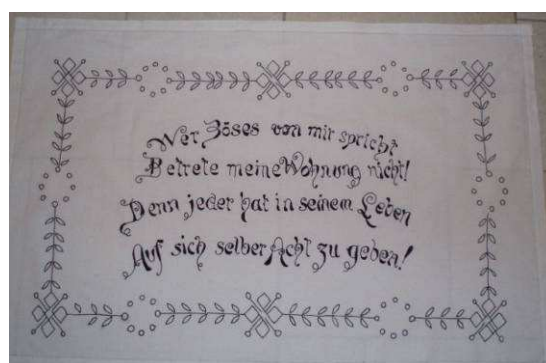 Wer Böses von mir spricht
Betrete meine Wohnung nicht!
Denn jeder hat in seinem Leben
Auf sich selber Acht zu geben!